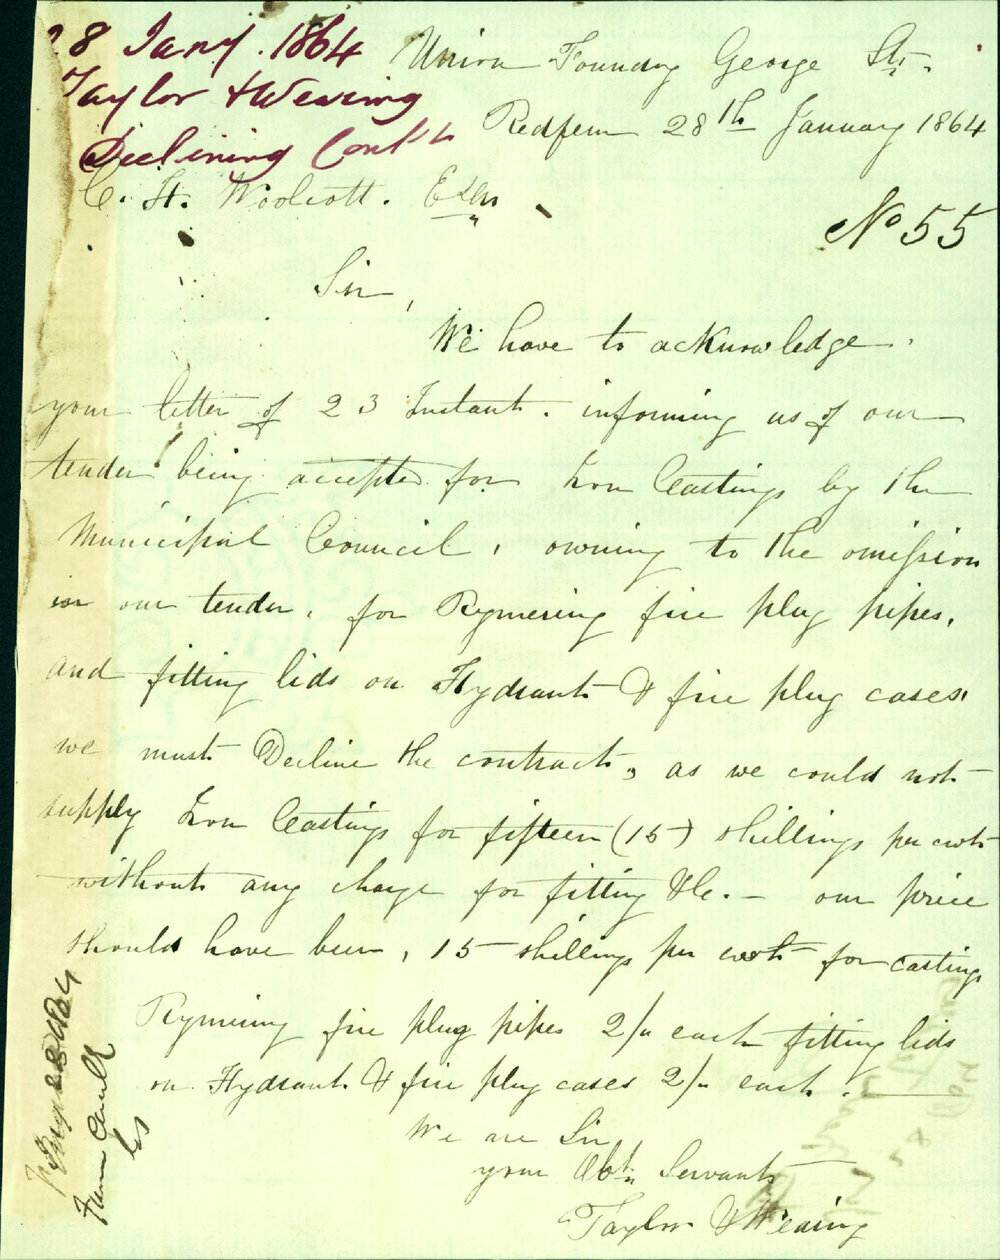 28 Jany. 1864
Taylor & Wearing
Declining Cont't
Union Foundry George St.
Redfern 28th January 1864
C. H. Woolcott. Esqr
No 55
Sir,
We have to acknowledge.
your letter of 23 Instant. informing us of our
tender being accepted for Iron Castings by the
Municipal Council, owning to the omission
in our tender, for Rymering fire plug pipes,
and fitting lids on Hydrants & fire plug cases,
we must Decline the contract, as we could not
supply Iron Castings for fifteen (15) shillings per cwt
without any charge for fitting &c. - our price
should have been, 15 shillings per cwt for castings
Rymering fire plug pipes 2/- each fitting lids
on Hydrants & fire plug cases 2/- each.
We are Sir
your Obt. Servants
Taylor & Wearing